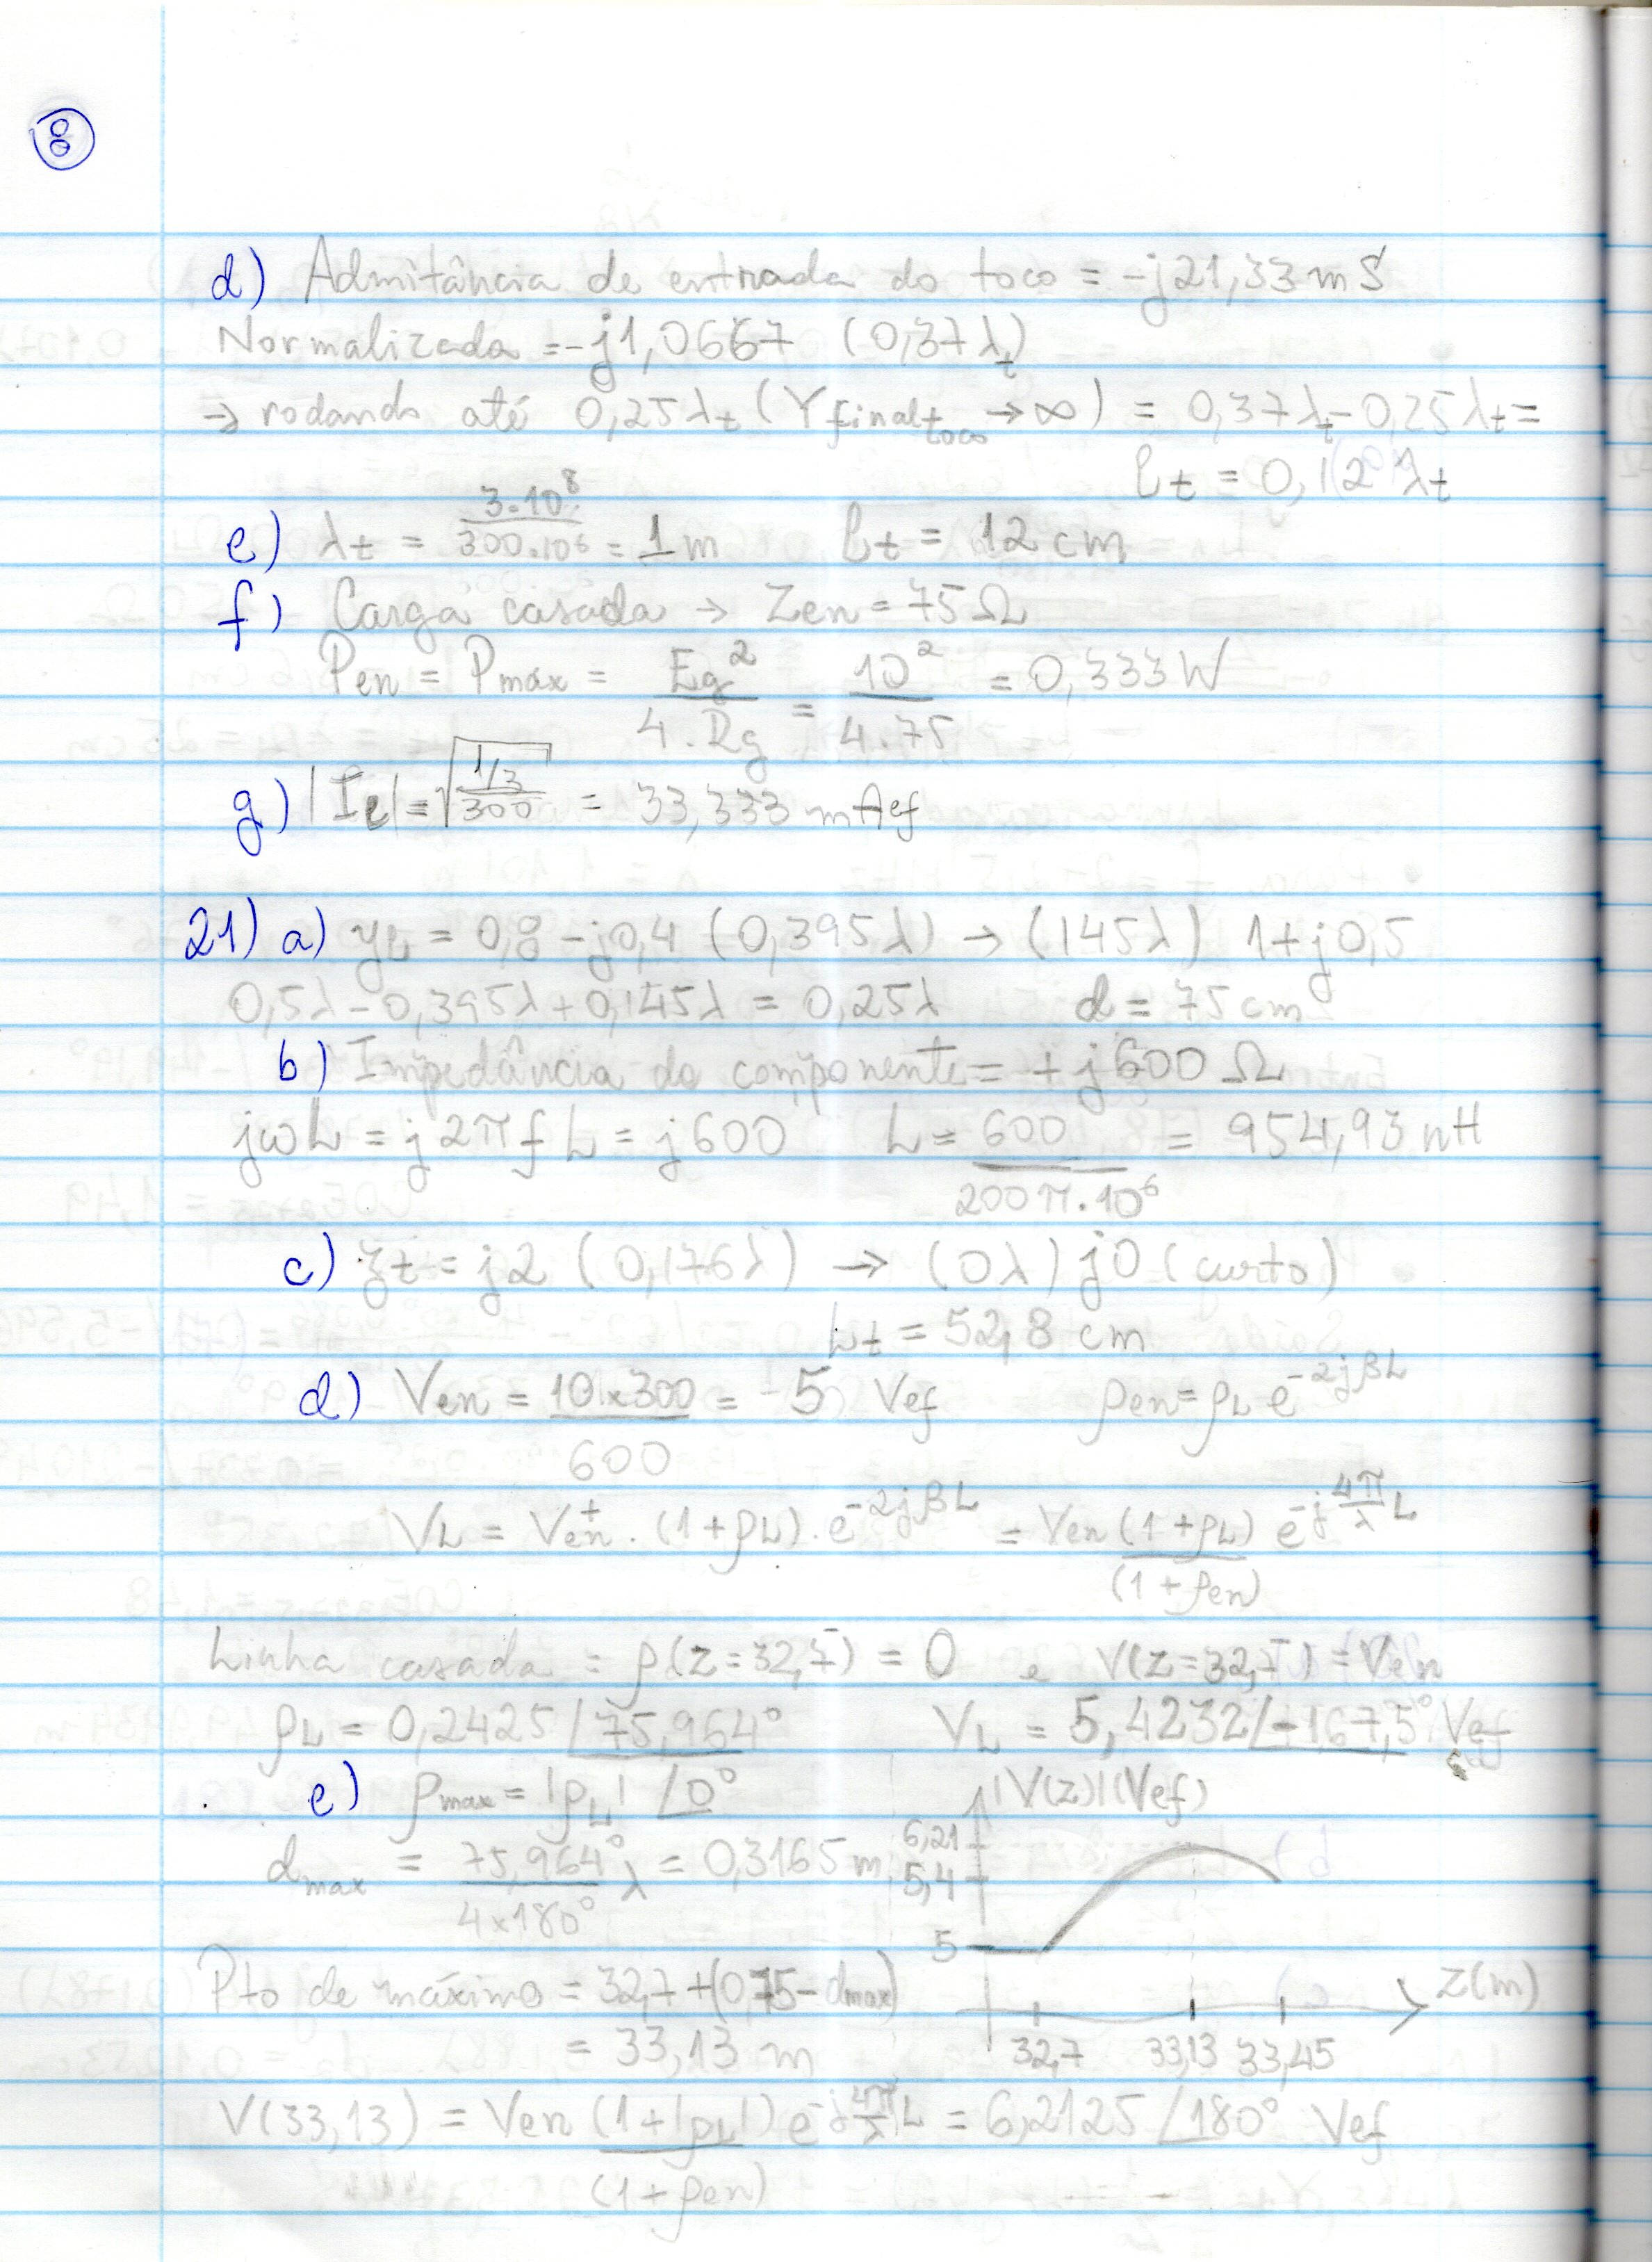 8
d) Admitância de entrada do toco = -j21,33 mS
Normalizada = -j1,0667 (0,37λt)
→ rodando até 0,25λt (Yfinal toco → ∞) = 0,37λt - 0,25λt =
lt = 0,12λt
e) λt = 3·10⁸/300·10⁶ = 1 m lt = 12 cm
f) Carga casada → Zen = 75Ω
Pen = Pmáx = Eg²/4.Rg = 10²/4.75 = 0,333 W
g) |Il| = √(1/3/300) = 33,333 mAef
21) a) yL = 0,8 - j0,4 (0,395λ) → (145λ) 1+j0,5
0,5λ - 0,395λ + 0,145λ = 0,25λ d = 75 cm
b) Impedância do componente = +j600 Ω
jωL = j2πfL = j600 L = 600/200π.10⁶ = 954,93 nH
c) zt = j2 (0,176λ) → (0λ) j0 (curto)
Lt = 52,8 cm
d) Ven = 10x300/600 = -5 Vef ρen = ρL e^-2jβL
VL = Ven⁺ . (1+ρL) . e^-2jβL = Ven (1+ρL)/(1+ρen) e^-j4π/λ L
Linha casada = ρ(z=32,7⁻) = 0 e V(z=32,7⁻) = Ven
ρL = 0,2425 /75,964° VL = 5,4232/-167,5° Vef
e) ρmax = |ρL| /0° |V(z)|(Vef)
6,21
dmax = 75,964°/4x180° λ = 0,3165 m 5,4
5
Pto de máximo = 32,7 + (0,75 - dmax) Z(m)
= 33,13 m 32,7 33,13 33,45
V(33,13) = Ven (1+|ρL|)/(1+ρen) e^-j4π/λ L = 6,2125 /180° Vef